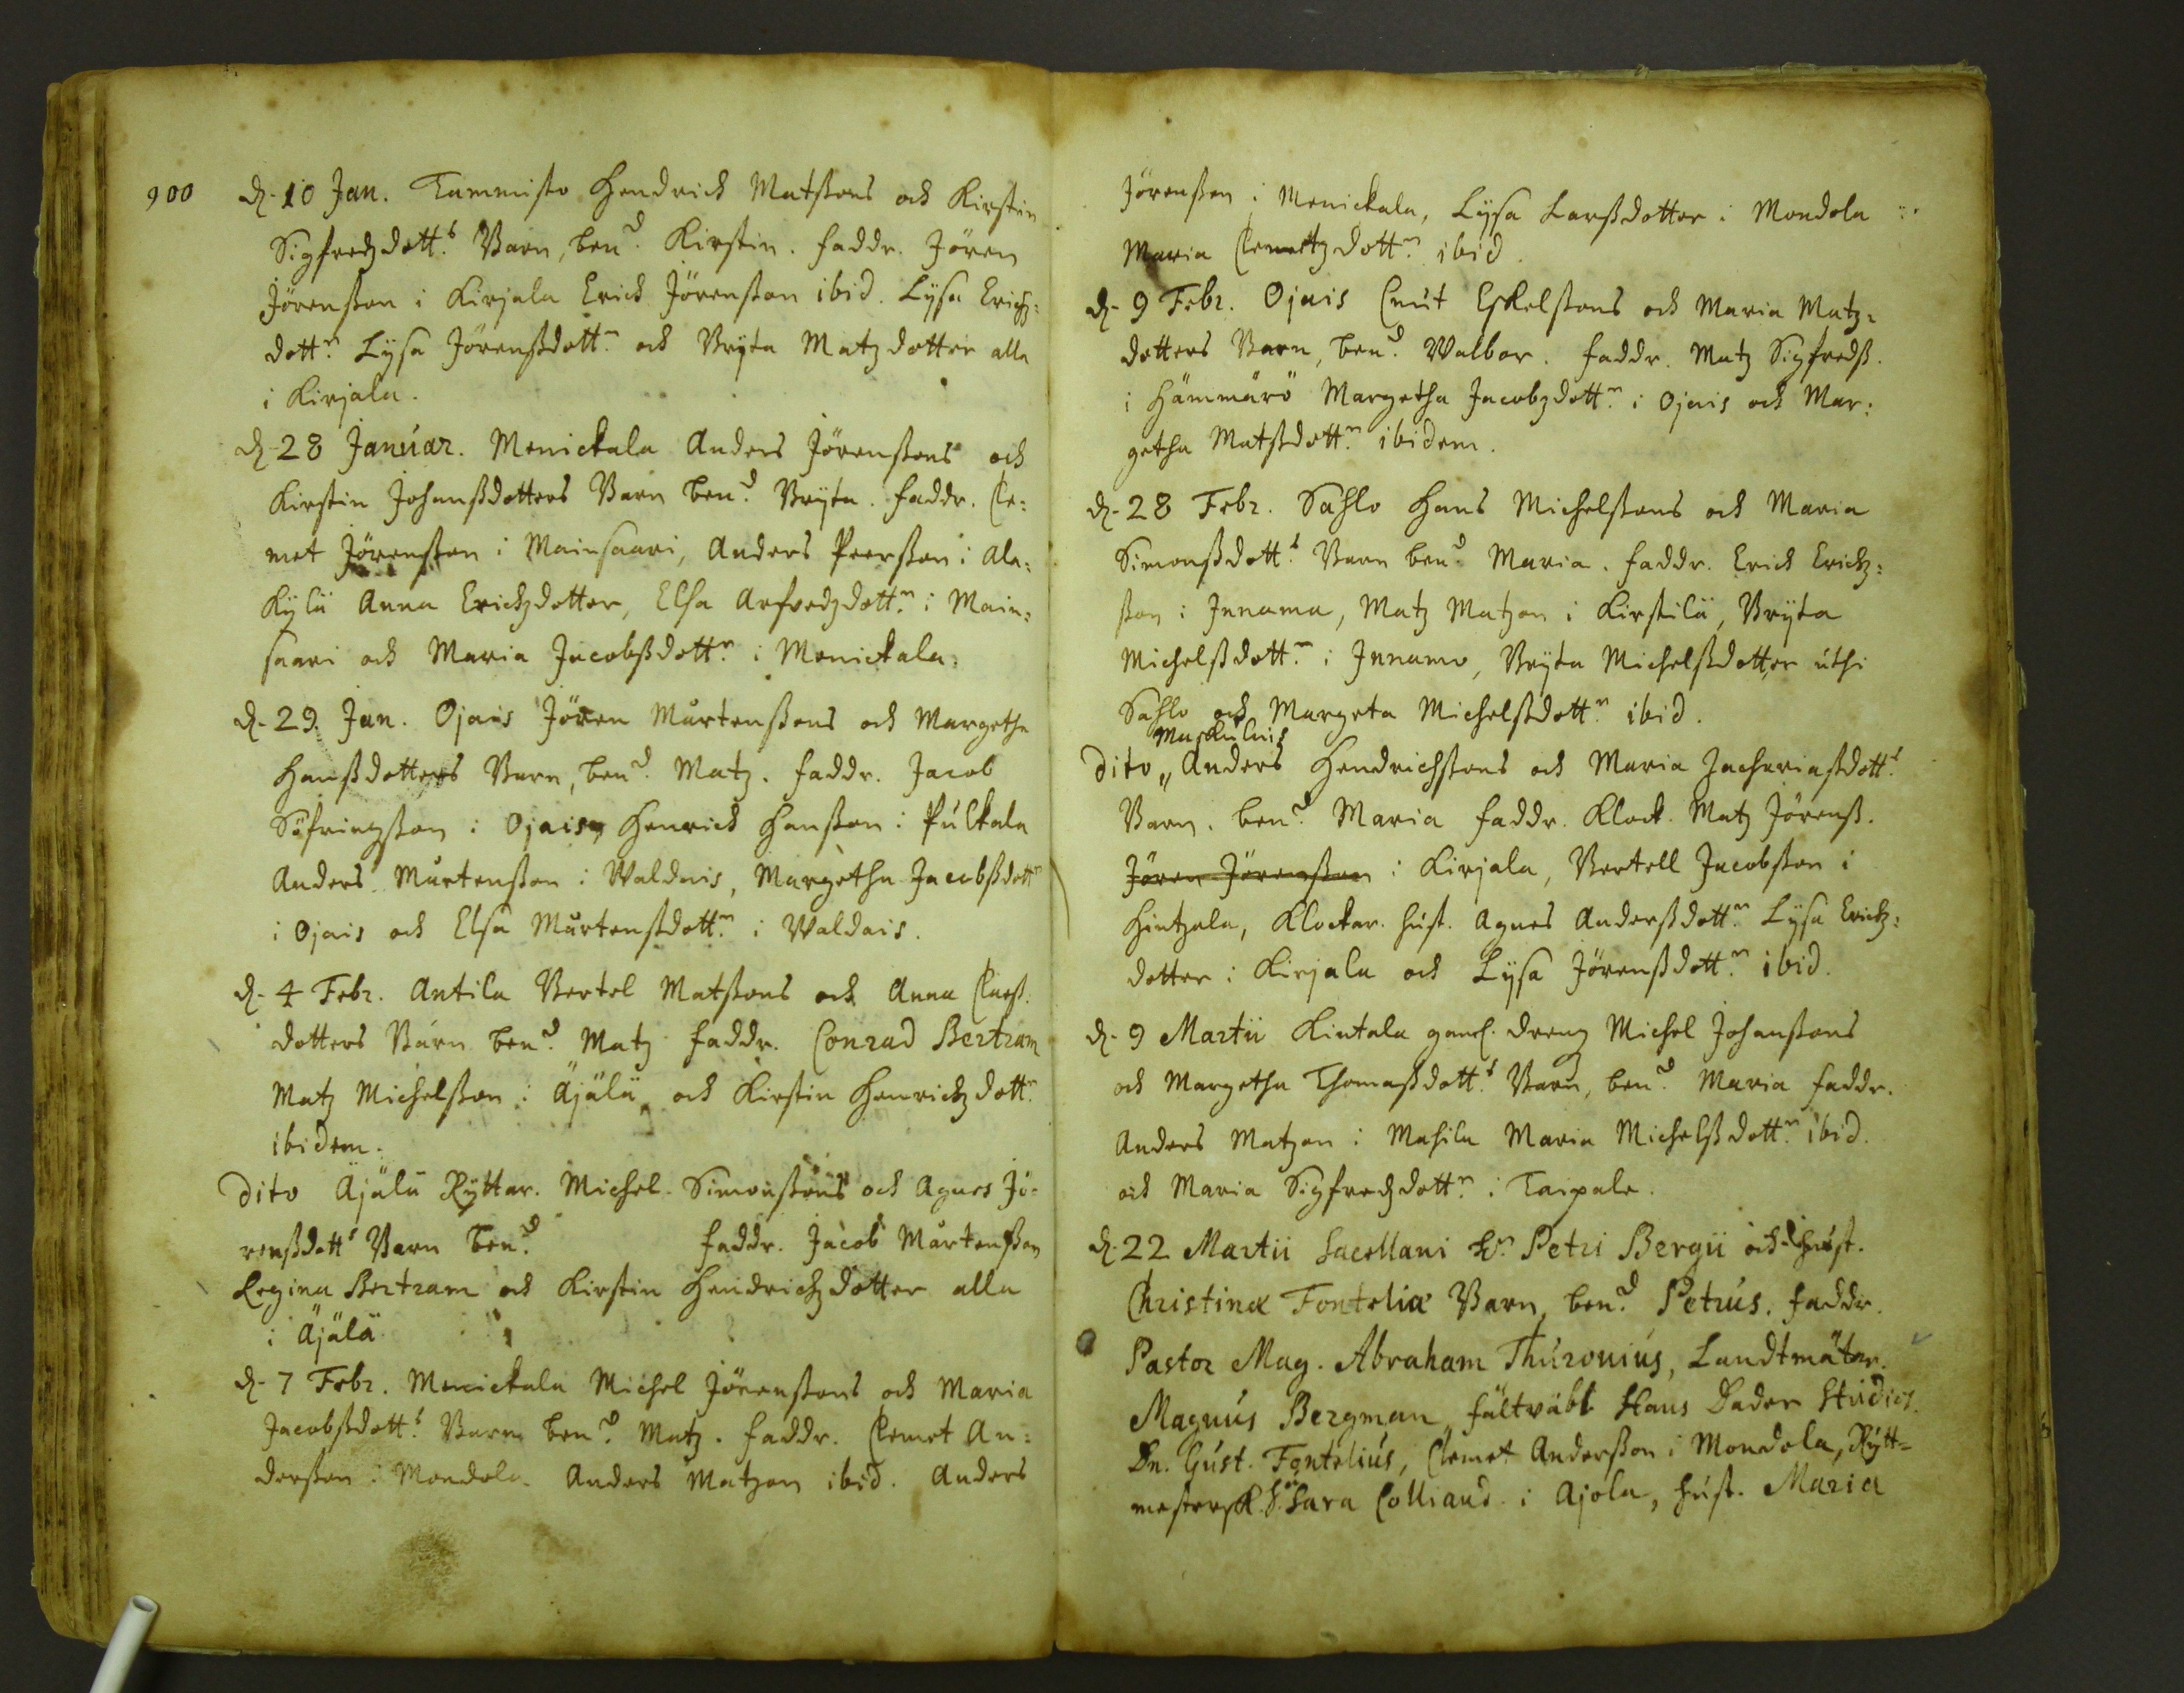 900
d. 10 Jan. Tammisto Hendrich Matssons och Kirstin
Sigfredzdott.s Barn, ben.d Kirstin. faddr. Jören
Jörensson i Kirjala Erich Jörensson ibid. Lysa Erichz=
dott.r Lysa Jörenssdott.r och Bryta Matzdotter alla
i Kirjala.
d. 28 Januar. Menickala Anders Jörenssons och
Kirstin Johanssdotters Barn ben.d Bryta. faddr. Cle=
met Jörensson i Mainsaari, Anders Peersson i Ala=
Kylä Anna Erichzdotter, Elsa Arfvedzdott.r i Main=
saari och Maria Jacobssdott.r i Menickala.
d. 29. Jan. Ojais Jören Mårtenssons och Margetha
Hanssdotters Barn, ben.d Matz. faddr. Jacob
Söfringsson i Ojais, Henrich Hansson i Pulkala
Anders Mårtensson i Waldais, Margetha Jacobssdott.r
i Ojais och Elsa Mårtenssdott.r i Waldais.
d. 4 Febr. Antila Bertel Matssons och Anna Claess.
dotters Barn ben.d Matz faddr. Conrad Bertram
Matz Michelsson i Äjälä och Kirstin Henrichzdott.r
ibidem.
Dito Äjälä Ryttar. Michel Simonssons och Agnes Jö=
renssdott.s Barn ben.d faddr. Jacob Mårtensson
Regina Bertram och Kirstin Hendrichzdotter alla
i Äjälä
d. 7 Febr. Menickala Michel Jörenssons och Maria
Jacobssdott.s Barn ben.d Matz. faddr. Clemet An=
dersson i Mondola. Anders Matzon ibid. Anders
Jörensson i Menickala, Lysa Larssdotter i Mondola
Maria Clemetzdott.r ibid.
d. 9 Febr. Ojais Cnut Eskelssons och Maria Matz=
dotters Barn, ben.d Walbor. faddr. Matz Sigfredss.
i Hämmärö Margetha Jacobzdott.r i Ojais och Mar=
getha Matssdott.r ibidem.
d. 28 Febr. Sahlo Hans Michelssons och Maria
Simonssdott.s Barn ben.d Maria. faddr. Erich Erichz=
son i Innama, Matz Matzon i Kirstilä, Bryta
Michelssdott.r i Innamo, Bryta Michelssdotter uthi
Sahlo och Margeta Michelssdott.r ibid.
Maskulais
Dito „ Anders Hendrichssons och Maria Zachariassdott.s
Barn. ben.d Maria faddr. Klock. Matz Jörenss.
Jören Jörensson i Kirjala, Bertell Jacobsson i
Hintzala, Klockar. hust. Agnes Anderssdott.r Lysa Erichz=
dotter i Kirjala och Lysa Jörenssdott.r ibid.
d. 9 Martii Kintala dreng Michel Johanssons
och Margetha Thomassdott.s Barn, ben.d Maria faddr.
Anders Matzon i Mahila Maria Michelssdott.r ibid.
och Maria Sigfredzdott.r i Taipale.
d. 22 Martii Sacellani H.r Petri Bergii och hust.
Christinæ Fonteliæ Barn, ben.d Petrus. faddr.
Pastor Mag. Abraham Thuronius, Landtmätar.
Magnus Bergman, fältväbl Hans Bader Studios.
Dn. Gust. Fontelius, Clemet Andersson i Mondola, Rytt=
mestersk. Sara Colliand. i Ajola, hust. Maria